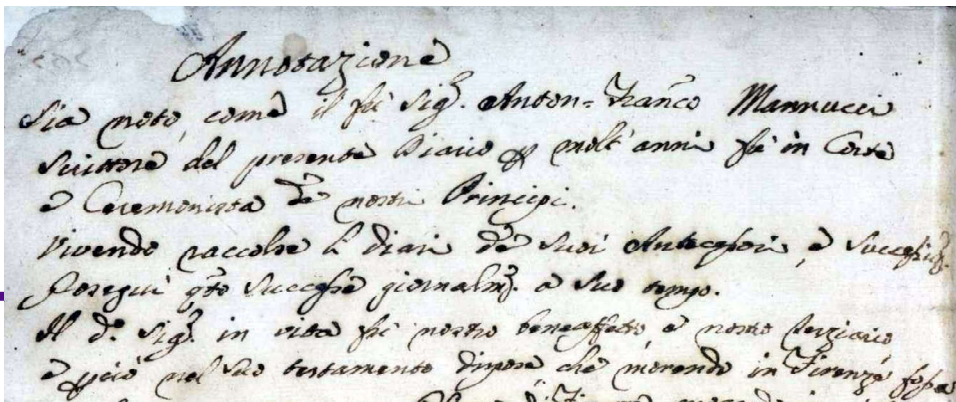 Annotazione
Sia noto, come il fù Sig.r Anton=Franco Mannucci
Scrittore del presente Diario p molt'anni fù in Corte
e Ceremonista de nostri Principi.
Vivendo raccolse li Diari de suoi Antecessori, e
Proseguì q.to successe giornalm.te a suo tempo.
Il d.o Sig.r in vita fù nostro benaffetto, e nostro Terziario,
e pciò nel suo testamento dispose che morendo in Firenze fosse